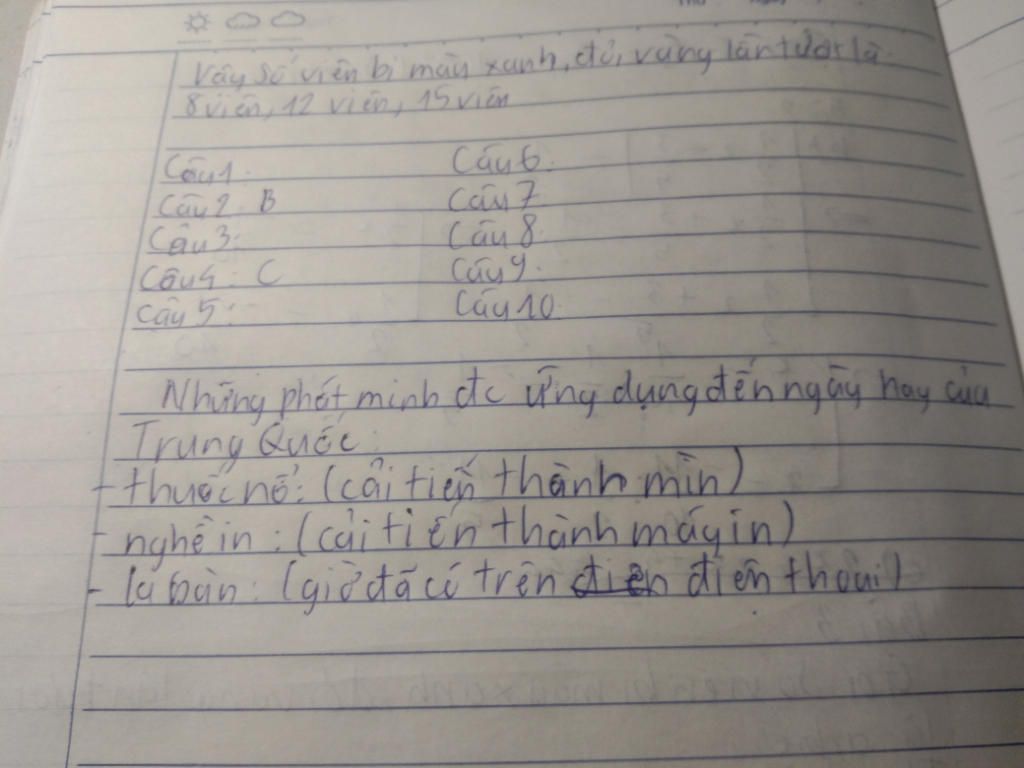 Vậy số viên bi màu xanh, đỏ, vàng lần lượt là
8 viên, 12 viên, 15 viên
Câu 1: Câu 6:
Câu 2: B Câu 7
Câu 3: Câu 8
Câu 4: C Câu 9.
Câu 5: Câu 10
Những phát minh đc ứng dụng đến ngày nay của
Trung Quốc:
- thuốc nổ: (cải tiến thành mìn)
- nghề in: (cải tiến thành máy in)
- la bàn: (giờ đã có trên điện thoại)